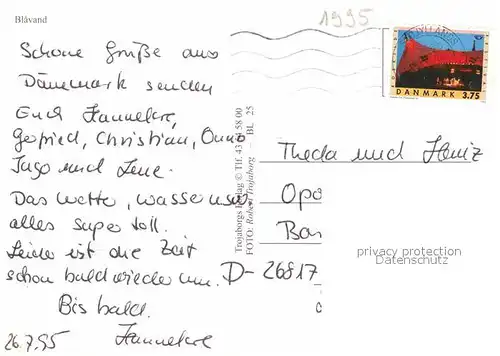 Blåvand
1995
Schöne Grüße aus
Dänemark senden
Euch Hannelore,
Gerfried, Christian, Onno
Ingo und Lene.
Das Wetter, Wasser usw.
alles super toll.
Leider ist die Zeit
schon bald wieder um.
Bis bald.
26.7.95 Hannelore
Trojaborgs Forlag © Tlf. 43 58 00
FOTO: Robert Trojaborg – BL. 25
DANMARK 3.75
Theda und Heinz
Opo
Bar
D-26817
privacy protection
Datenschutz